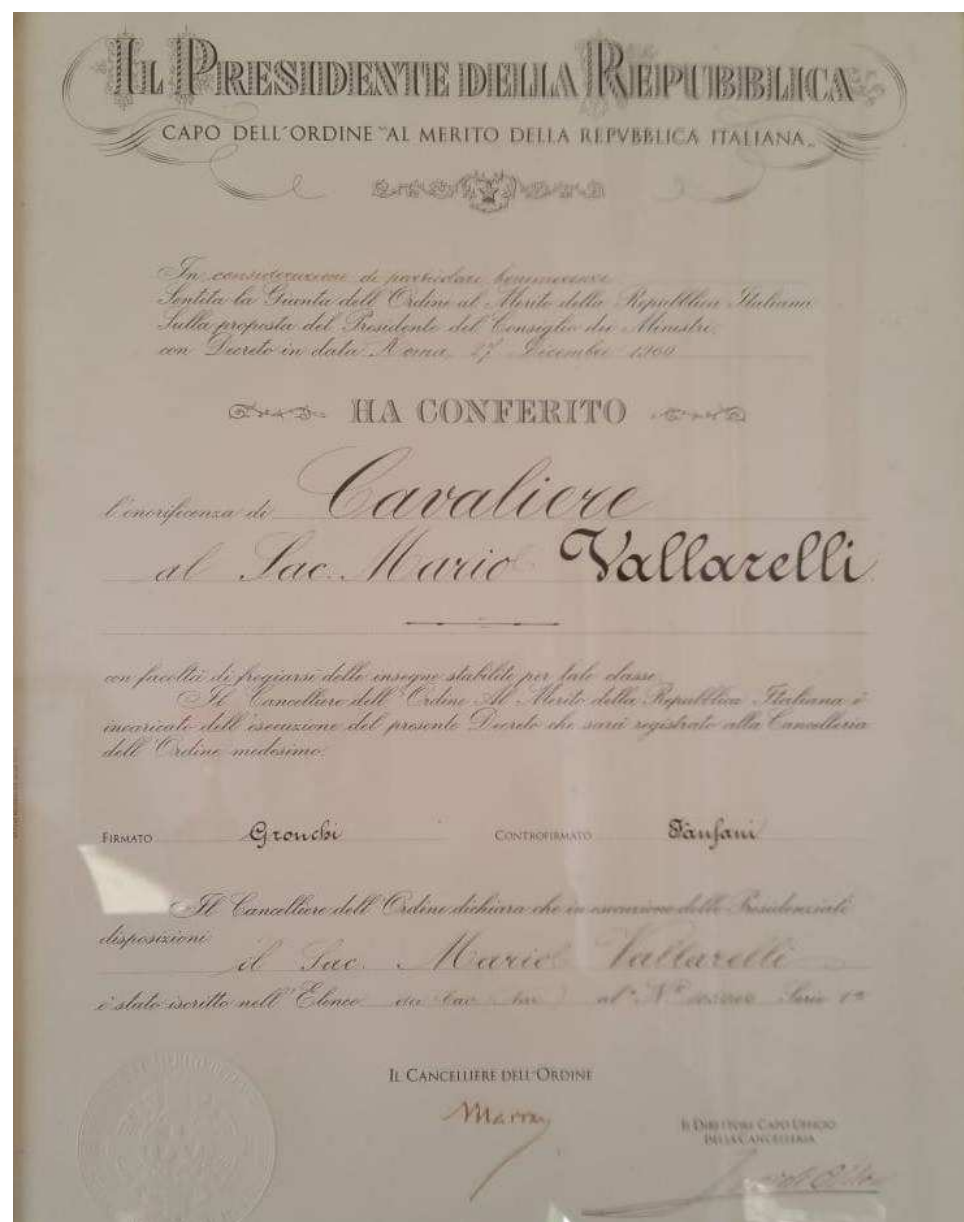 IL PRESIDENTE DELLA REPUBBLICA
CAPO DELL'ORDINE "AL MERITO DELLA REPVBBLICA ITALIANA"
In considerazione di particolari benemerenze
Sentita la Giunta dell'Ordine al Merito della Repubblica Italiana
Sulla proposta del Presidente del Consiglio dei Ministri;
con Decreto in data Roma, 27 Dicembre 1960
HA CONFERITO
l'onorificenza di Cavaliere
al Sac. Mario Vallarelli
con facoltà di fregiarsi delle insegne stabilite per tale classe.
Il Cancelliere dell'Ordine Al Merito della Repubblica Italiana è
incaricato dell'esecuzione del presente Decreto che sarà registrato alla Cancelleria
dell'Ordine medesimo.
FIRMATO Gronchi CONTROFIRMATO Fanfani
Il Cancelliere dell'Ordine dichiara che in esecuzione delle Presidenziali
disposizioni
il Sac. Mario Vallarelli
è stato iscritto nell'Elenco dei Cav. al N° Serie 1ª
IL CANCELLIERE DELL'ORDINE
IL DIRETTORE CAPO UFFICIO
DELLA CANCELLERIA